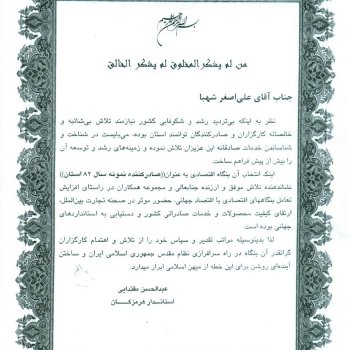 بسم الله الرحمن الرحیم
من لم یشکر المخلوق لم یشکر الخالق
جناب آقای علی‌اصغر شهبا
نظر به اینکه بی‌تردید رشد و شکوفایی کشور نیازمند تلاش بی‌شائبه و
خالصانه کارگزاران و صادرکنندگان توانمند استان بوده، می‌بایست در شناخت و
شناساندن خدمات صادقانه این عزیزان تلاش نموده و زمینه‌های رشد و توسعه آن
را بیش از پیش فراهم ساخت.
اینک انتخاب آن بنگاه اقتصادی به عنوان((صادرکننده نمونه سال ۸۲ استان))
نشاندهنده تلاش موفق و ارزنده جنابعالی و مجموعه همکاران در راستای افزایش
تعامل بنگاههای اقتصادی با اقتصاد جهانی، حضور موثر در صحنه تجارت بین‌الملل،
ارتقای کیفیت محصولات و خدمات صادراتی کشور و دستیابی به استانداردهای
جهانی بوده است.
لذا بدینوسیله مراتب تقدیر و سپاس خود را از تلاش و اهتمام کارگزاران
گرانقدر آن بنگاه در راه سرافرازی نظام مقدس جمهوری اسلامی ایران و ساختن
آینده‌ای روشن برای این خطه از میهن اسلامی ابراز میدارد.
عبدالحسن مقتدایی
استاندار هرمزگان